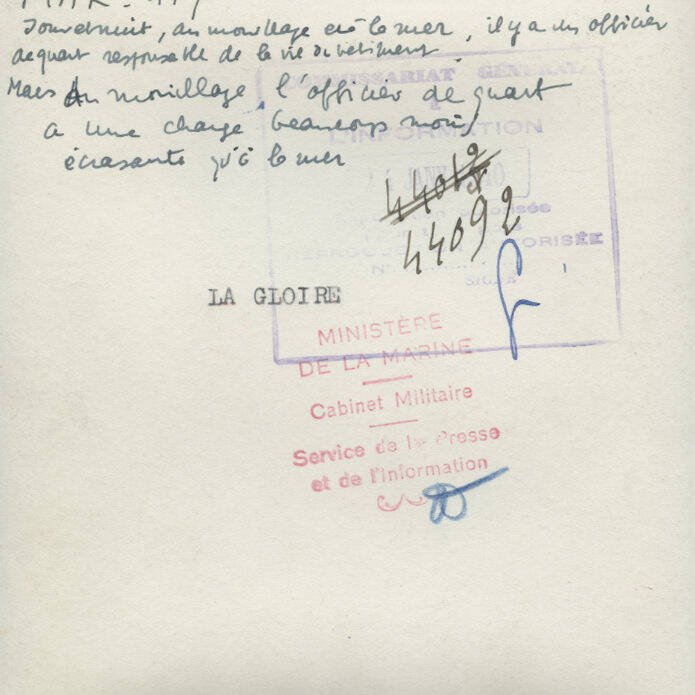 Jour et nuit, au mouillage et à la mer, il y a un officier
de quart responsable de la vie du bâtiment.
Mais au mouillage, l'officier de quart
a une charge beaucoup moins
écrasante qu'à la mer
COMMISSARIAT GÉNÉRAL
À
L'INFORMATION
JANV 1940
44012
44092
REPRODUCTION AUTORISÉE
N°
LA GLOIRE
MINISTÈRE
DE LA MARINE
Cabinet Militaire
Service de la Presse
et de l'Information